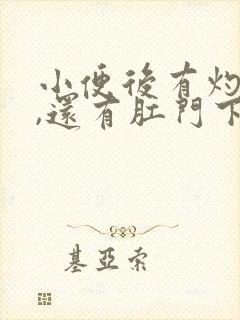 小便後有灼
,還有肛門下
基亞索